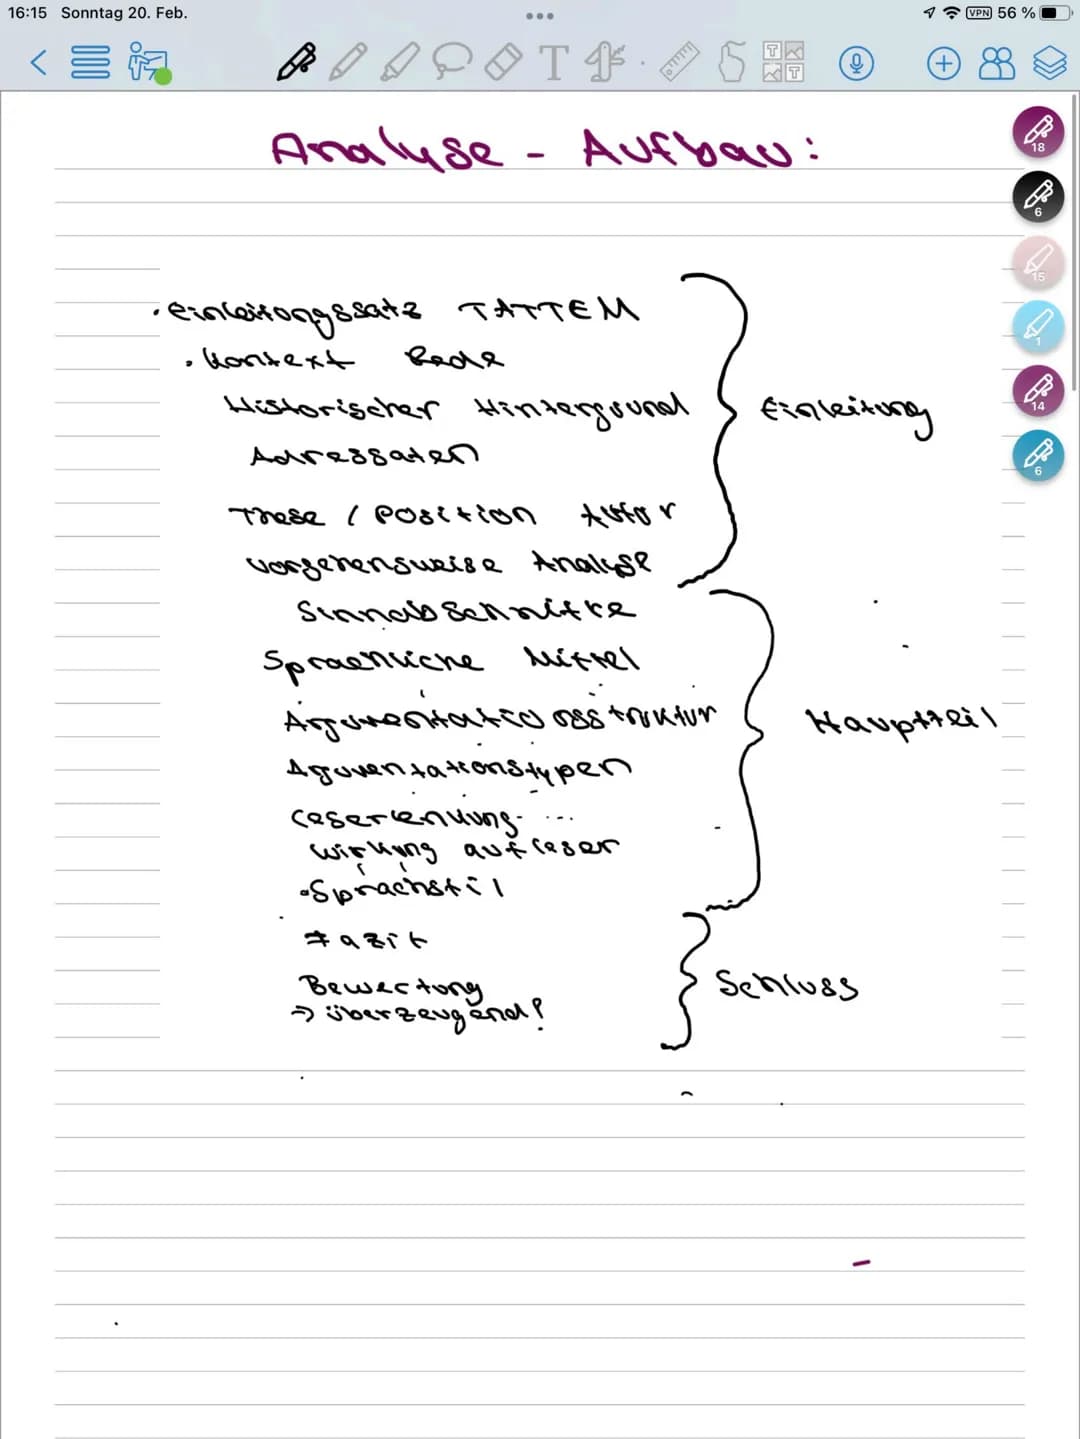 16:15 Sonntag 20. Feb.
VPN 56 %
Analyse - Aufbau:
18
6
15
1
14
6
• Einleitungssatz TATTEM
• Kontext Rede
Historischer Hintergrund
Adressaten
These / Position Autor
Vorgehensweise Analyse
Einleitung
Sinnabschnitte
Sprachliche Mittel
Argumentationsstruktur
Aguventationstypen
Leserlenkung
Wirkung auf Leser
• Sprachstil
Hauptteil
Fazit
Bewertung
→ überzeugend?
Schluss